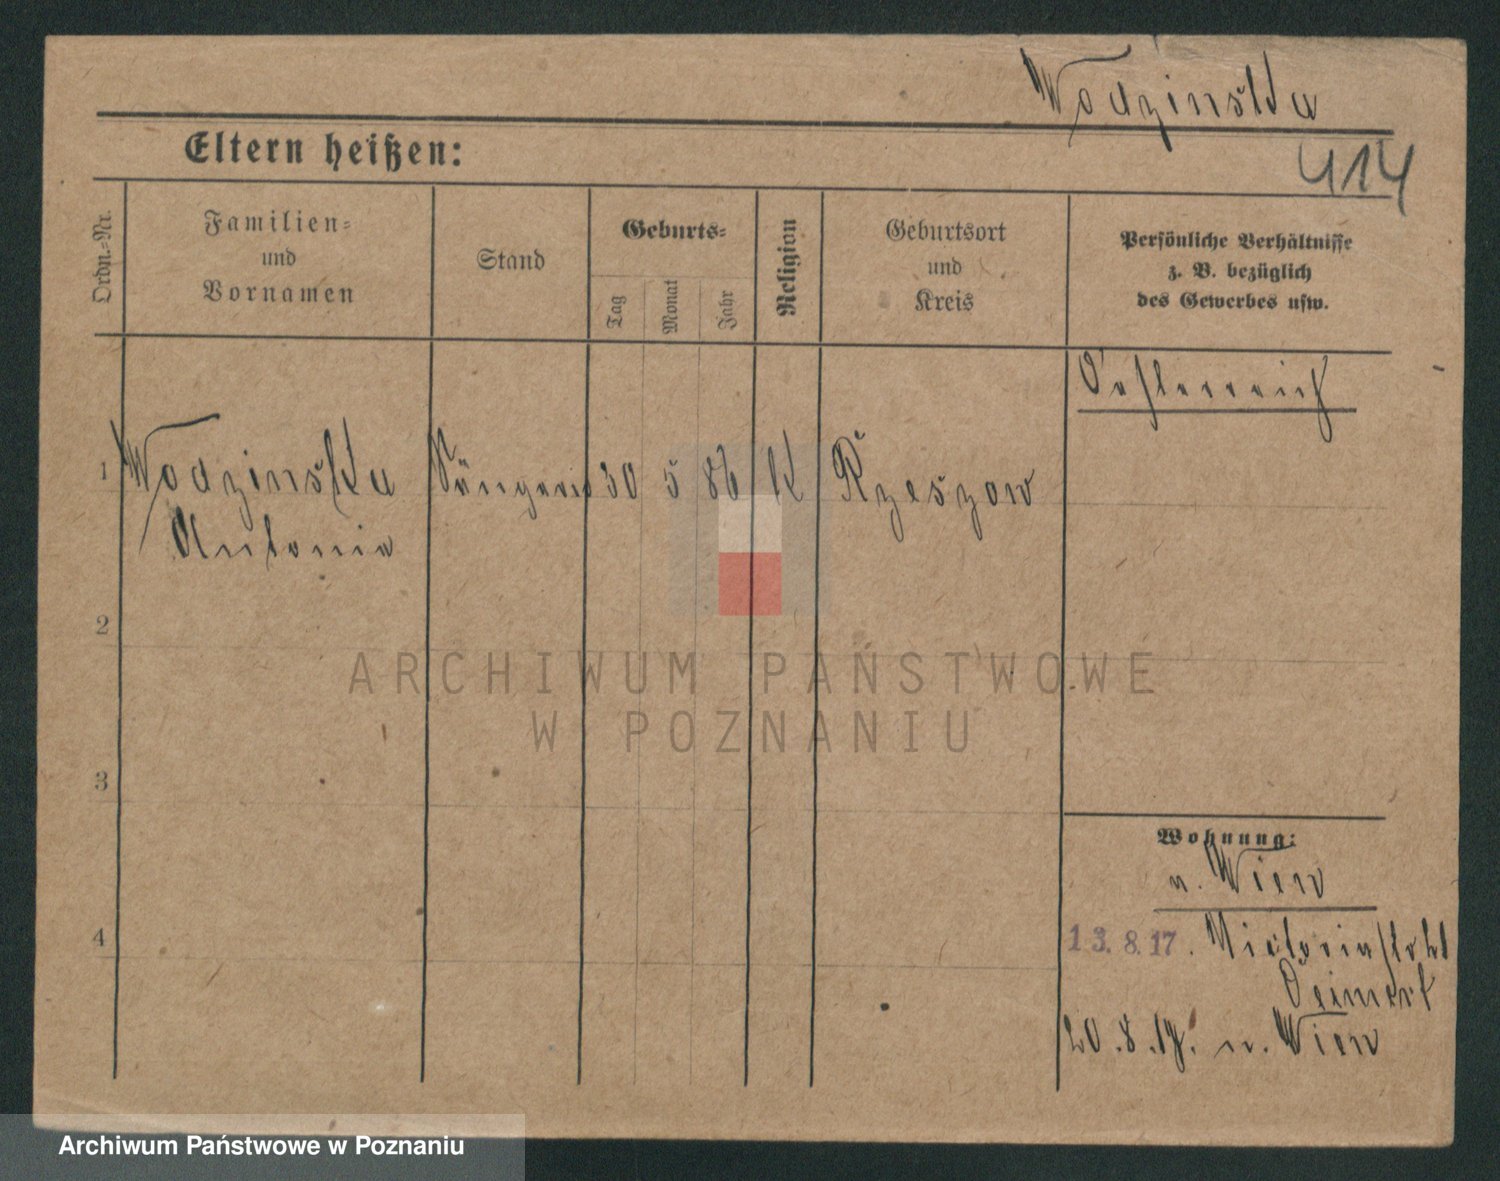 Wodzinska
414
Eltern heißen:
Ordn.-Nr.
Familien-
und
Vornamen
Stand
Geburts-
Tag
Monat
Jahr
Religion
Geburtsort
und
Kreis
Persönliche Verhältnisse
z. B. bezüglich
des Gewerbes usw.
Oesterreich
1 Wodzinska Sängerin 30 5 86 K Rzeszow
Antonie
2
ARCHIWUM PAŃSTWOWE
W POZNANIU
3
Wohnung:
n. Wien
4
13. 8. 17. Viktoria
20.8.17. n. Wien
Archiwum Państwowe w Poznaniu